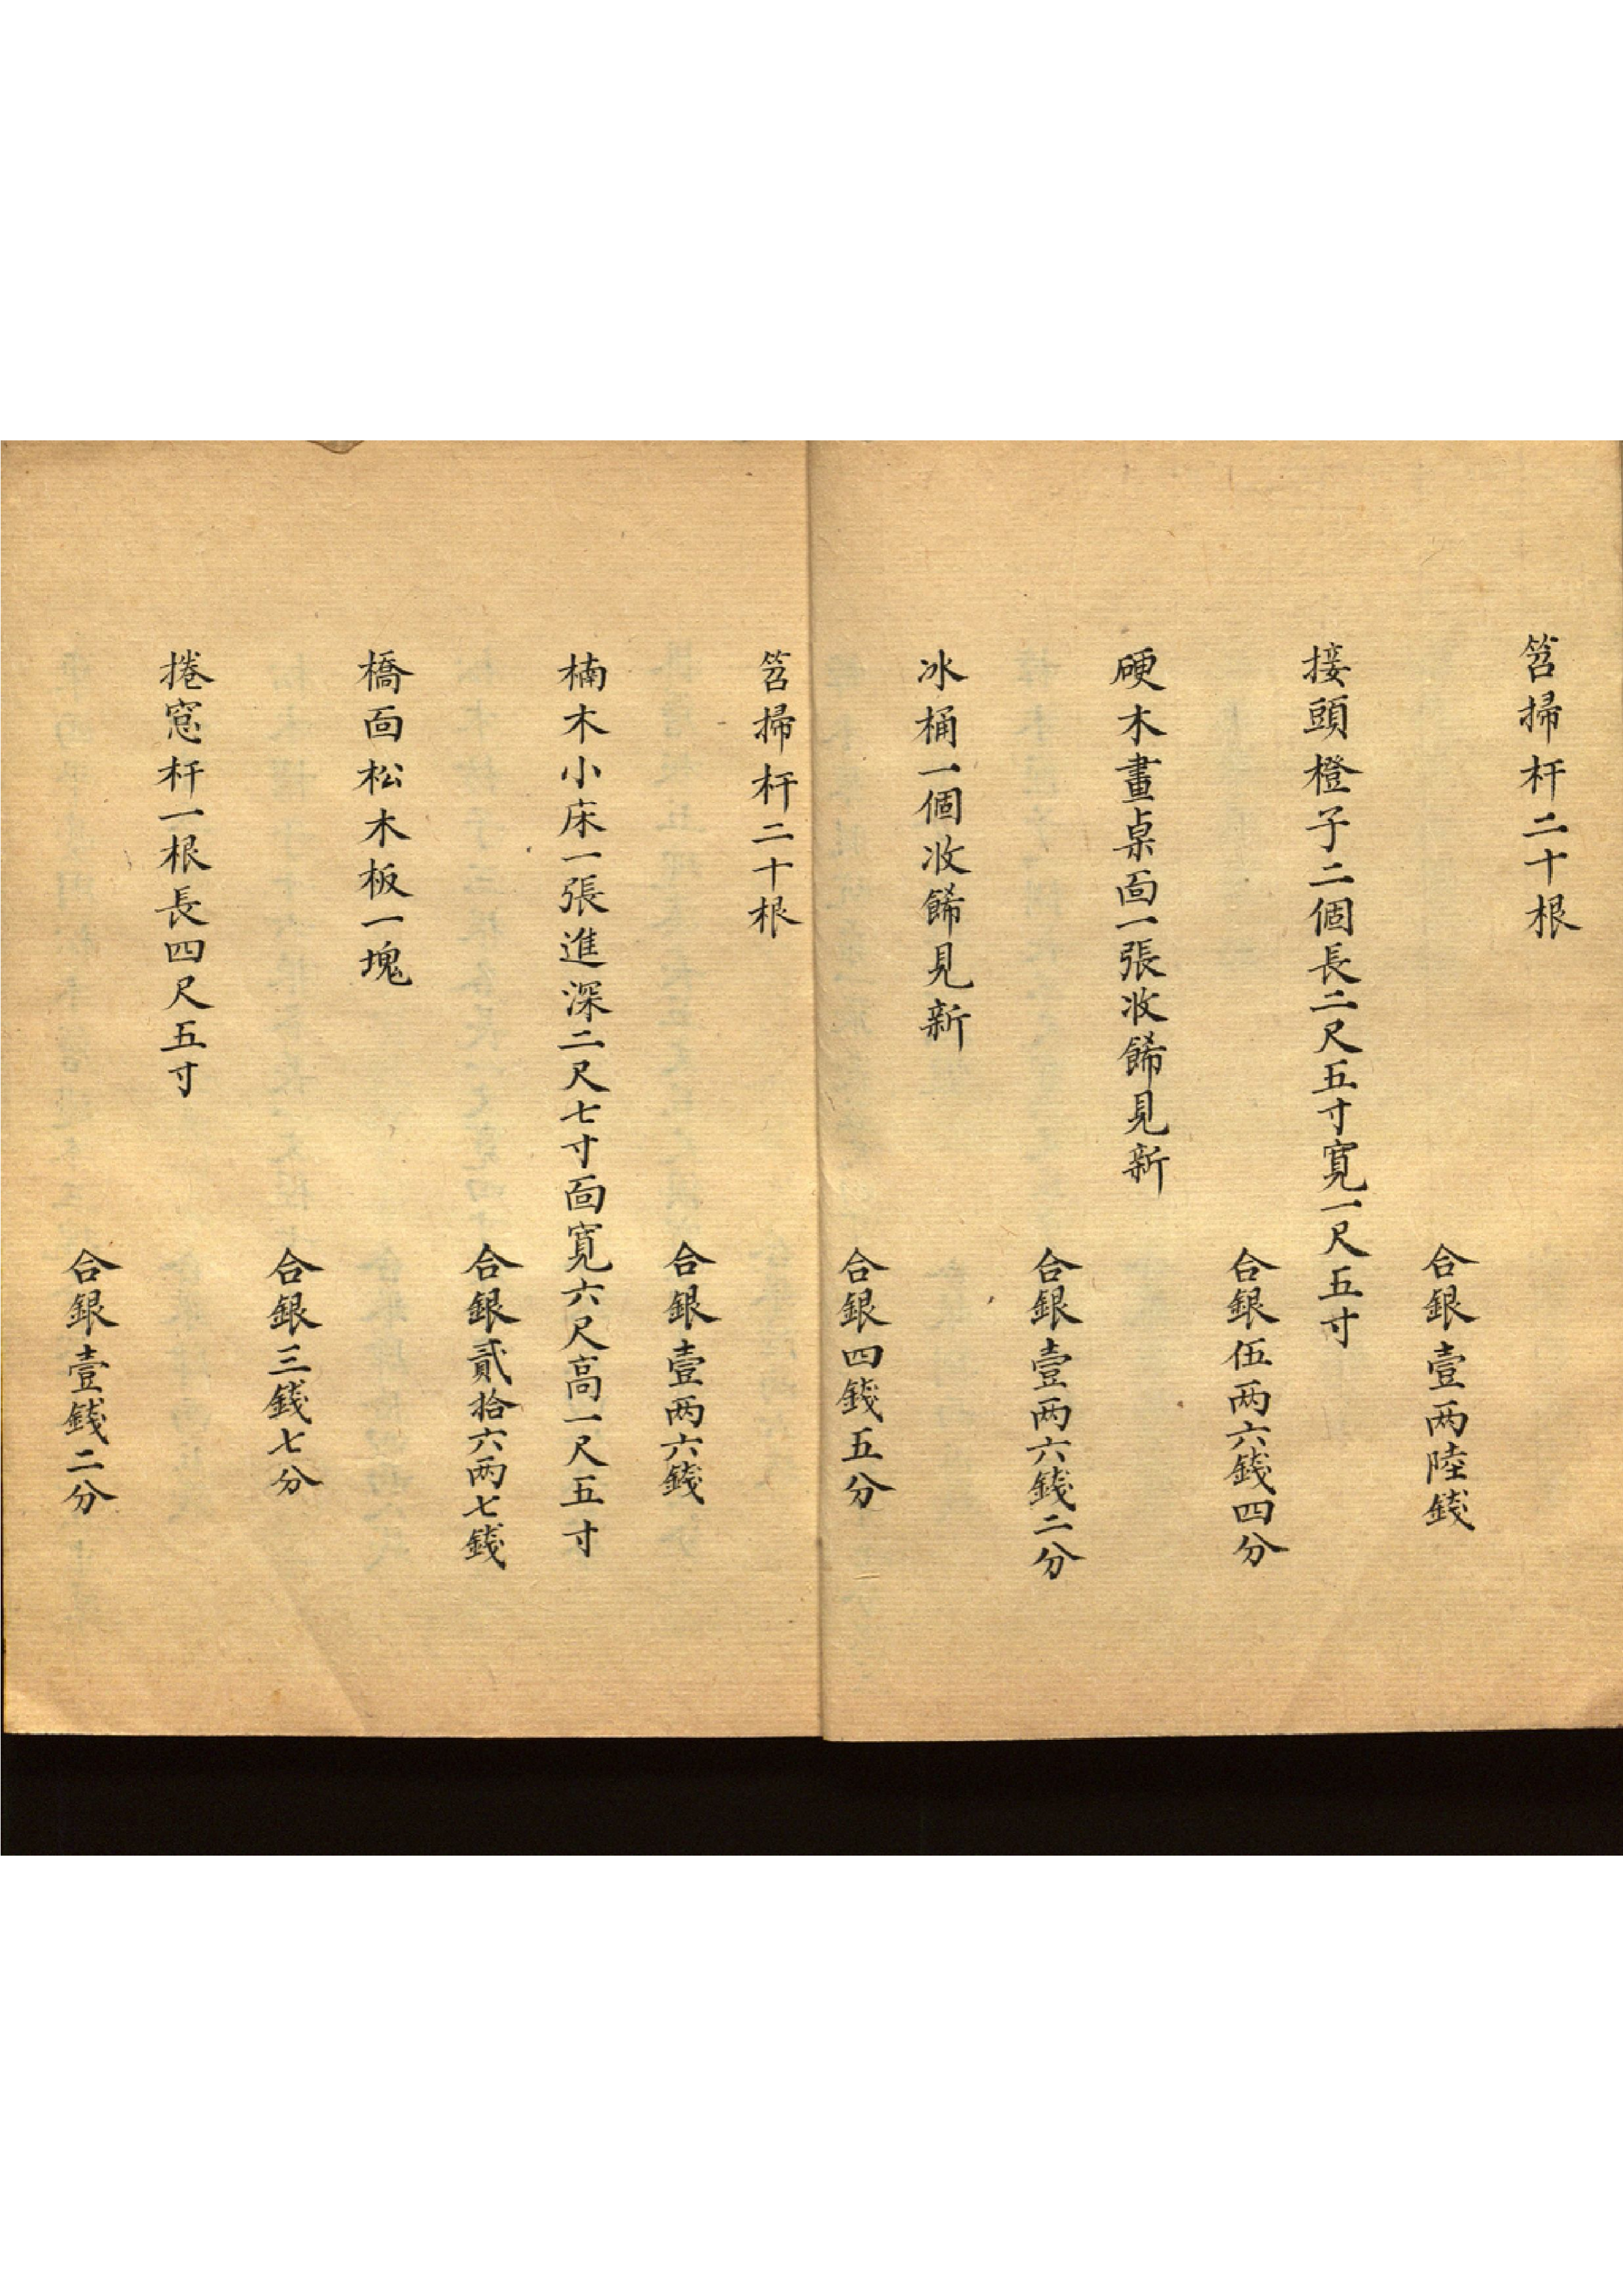 笤掃杆二十根
合銀壹两陸錢
接頭橙子二個長二尺五寸寬一尺五寸
合銀伍两六錢四分
硬木畫桌面一張收餙見新
合銀壹两六錢二分
冰桶一個收餙見新
合銀四錢五分
笤掃杆二十根
合銀壹两六錢
楠木小床一張進深二尺七寸面寬六尺高一尺五寸
合銀貳拾六两七錢
橋面松木板一塊
合銀三錢七分
捲窓杆一根長四尺五寸
合銀壹錢二分